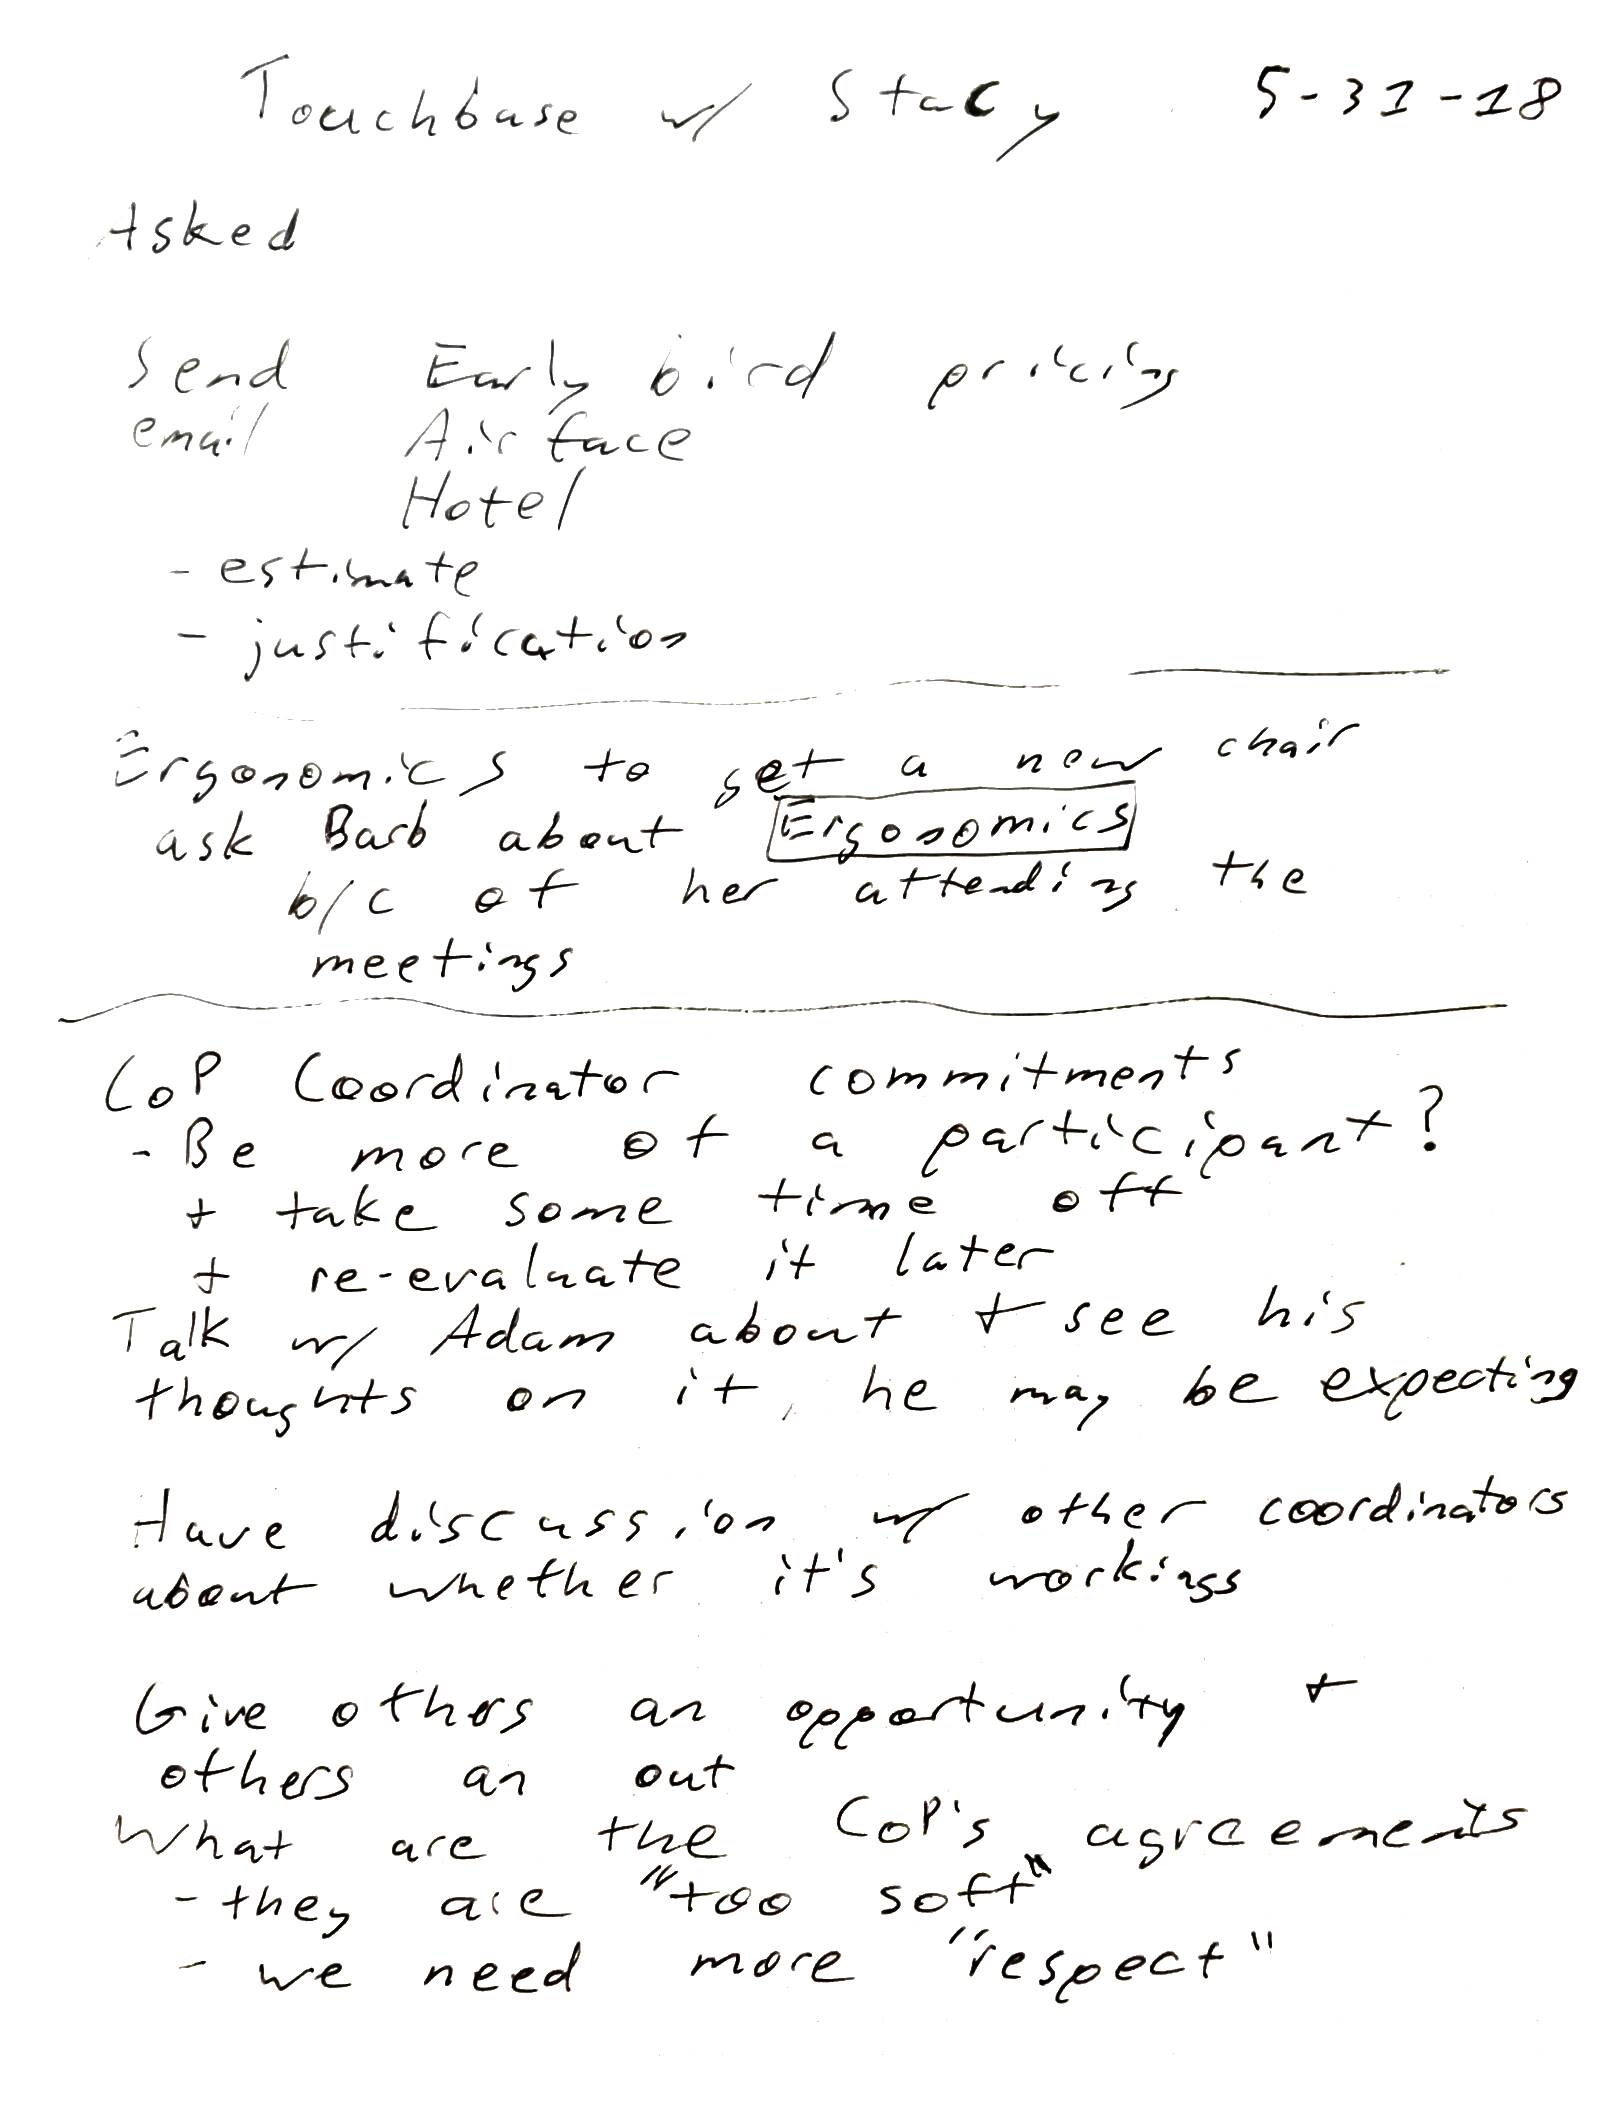 Touchbase w/ Stacy 5-31-18
Asked
Send Early bird pricing
email Airfare
Hotel
- estimate
- justification
Ergonomics to get a new chair
ask Barb about Ergonomics
b/c of her attending the
meetings
CoP Coordinator commitments
- Be more of a participant?
+ take some time off
+ re-evaluate it later
Talk w/ Adam about + see his
thoughts on it, he may be expecting
Have discussion w/ other coordinators
about whether it's workings
Give others an opportunity +
others an out
What are the CoP's agreements
- they are "too soft"
- we need more "respect"